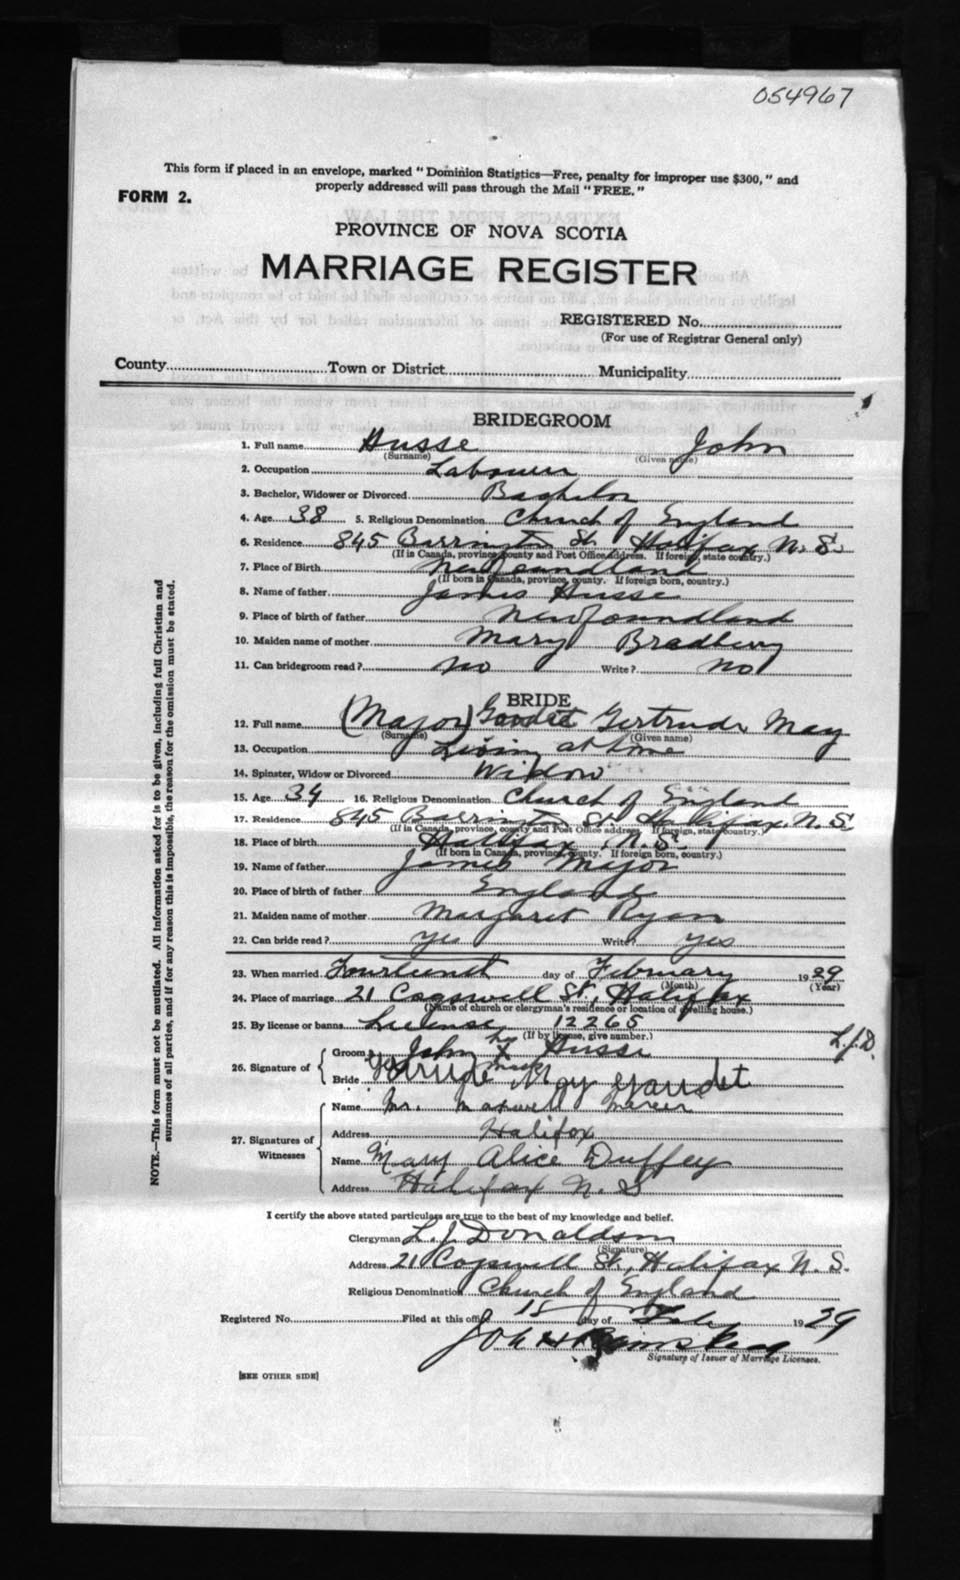 054967
This form if placed in an envelope, marked "Dominion Statistics—Free, penalty for improper use $300," and
properly addressed will pass through the Mail "FREE."
FORM 2.
PROVINCE OF NOVA SCOTIA
MARRIAGE REGISTER
REGISTERED No.
(For use of Registrar General only)
County Town or District Municipality
BRIDEGROOM
1. Full name Husse John
(Surname) (Given name)
2. Occupation Labourer
3. Bachelor, Widower or Divorced Bachelor
4. Age 38 5. Religious Denomination Church of England
6. Residence 845 Barrington St. Halifax N. S.
(If in Canada, province, county and Post Office address. If foreign, state country.)
7. Place of Birth Newfoundland
(If born in Canada, province, county. If foreign born, country.)
8. Name of father James Husse
9. Place of birth of father Newfoundland
10. Maiden name of mother Mary Bradbury
11. Can bridegroom read? No Write? No
BRIDE
12. Full name (Major) Gertrude May
(Surname) (Given name)
13. Occupation Living at home
14. Spinster, Widow or Divorced Widow
15. Age 34 16. Religious Denomination Church of England
17. Residence 845 Barrington St. Halifax N. S.
(If in Canada, province, county and Post Office address. If foreign, state country.)
18. Place of birth Halifax, N. S.
(If born in Canada, province, county. If foreign born, country.)
19. Name of father James Major
20. Place of birth of father England
21. Maiden name of mother Margaret Ryan
22. Can bride read? yes Write? yes
23. When married Fourteenth day of February 1929
(Month) (Year)
24. Place of marriage 21 Cogswell St., Halifax
(Name of church or clergyman's residence or location of dwelling house.)
25. By license or banns License 12265
(If by license, give number.)
L.J.D.
26. Signature of
Groom John his X mark Husse
Bride Gertrude May Gaudet
27. Signatures of Witnesses
Name Mr. Maxwell Mercer
Address Halifax
Name Mary Alice Duffey
Address Halifax N. S
I certify the above stated particulars are true to the best of my knowledge and belief.
Clergyman L. J. Donaldson
(Signature)
Address 21 Cogswell St., Halifax N. S.
Religious Denomination Church of England
Registered No. Filed at this office 15 day of Feby 1929
Signature of Issuer of Marriage Licenses.
[SEE OTHER SIDE]
NOTE.—This form must not be mutilated. All information asked for is to be given, including full Christian and
surnames of all parties, and if for any reason this is impossible, the reason for the omission must be stated.